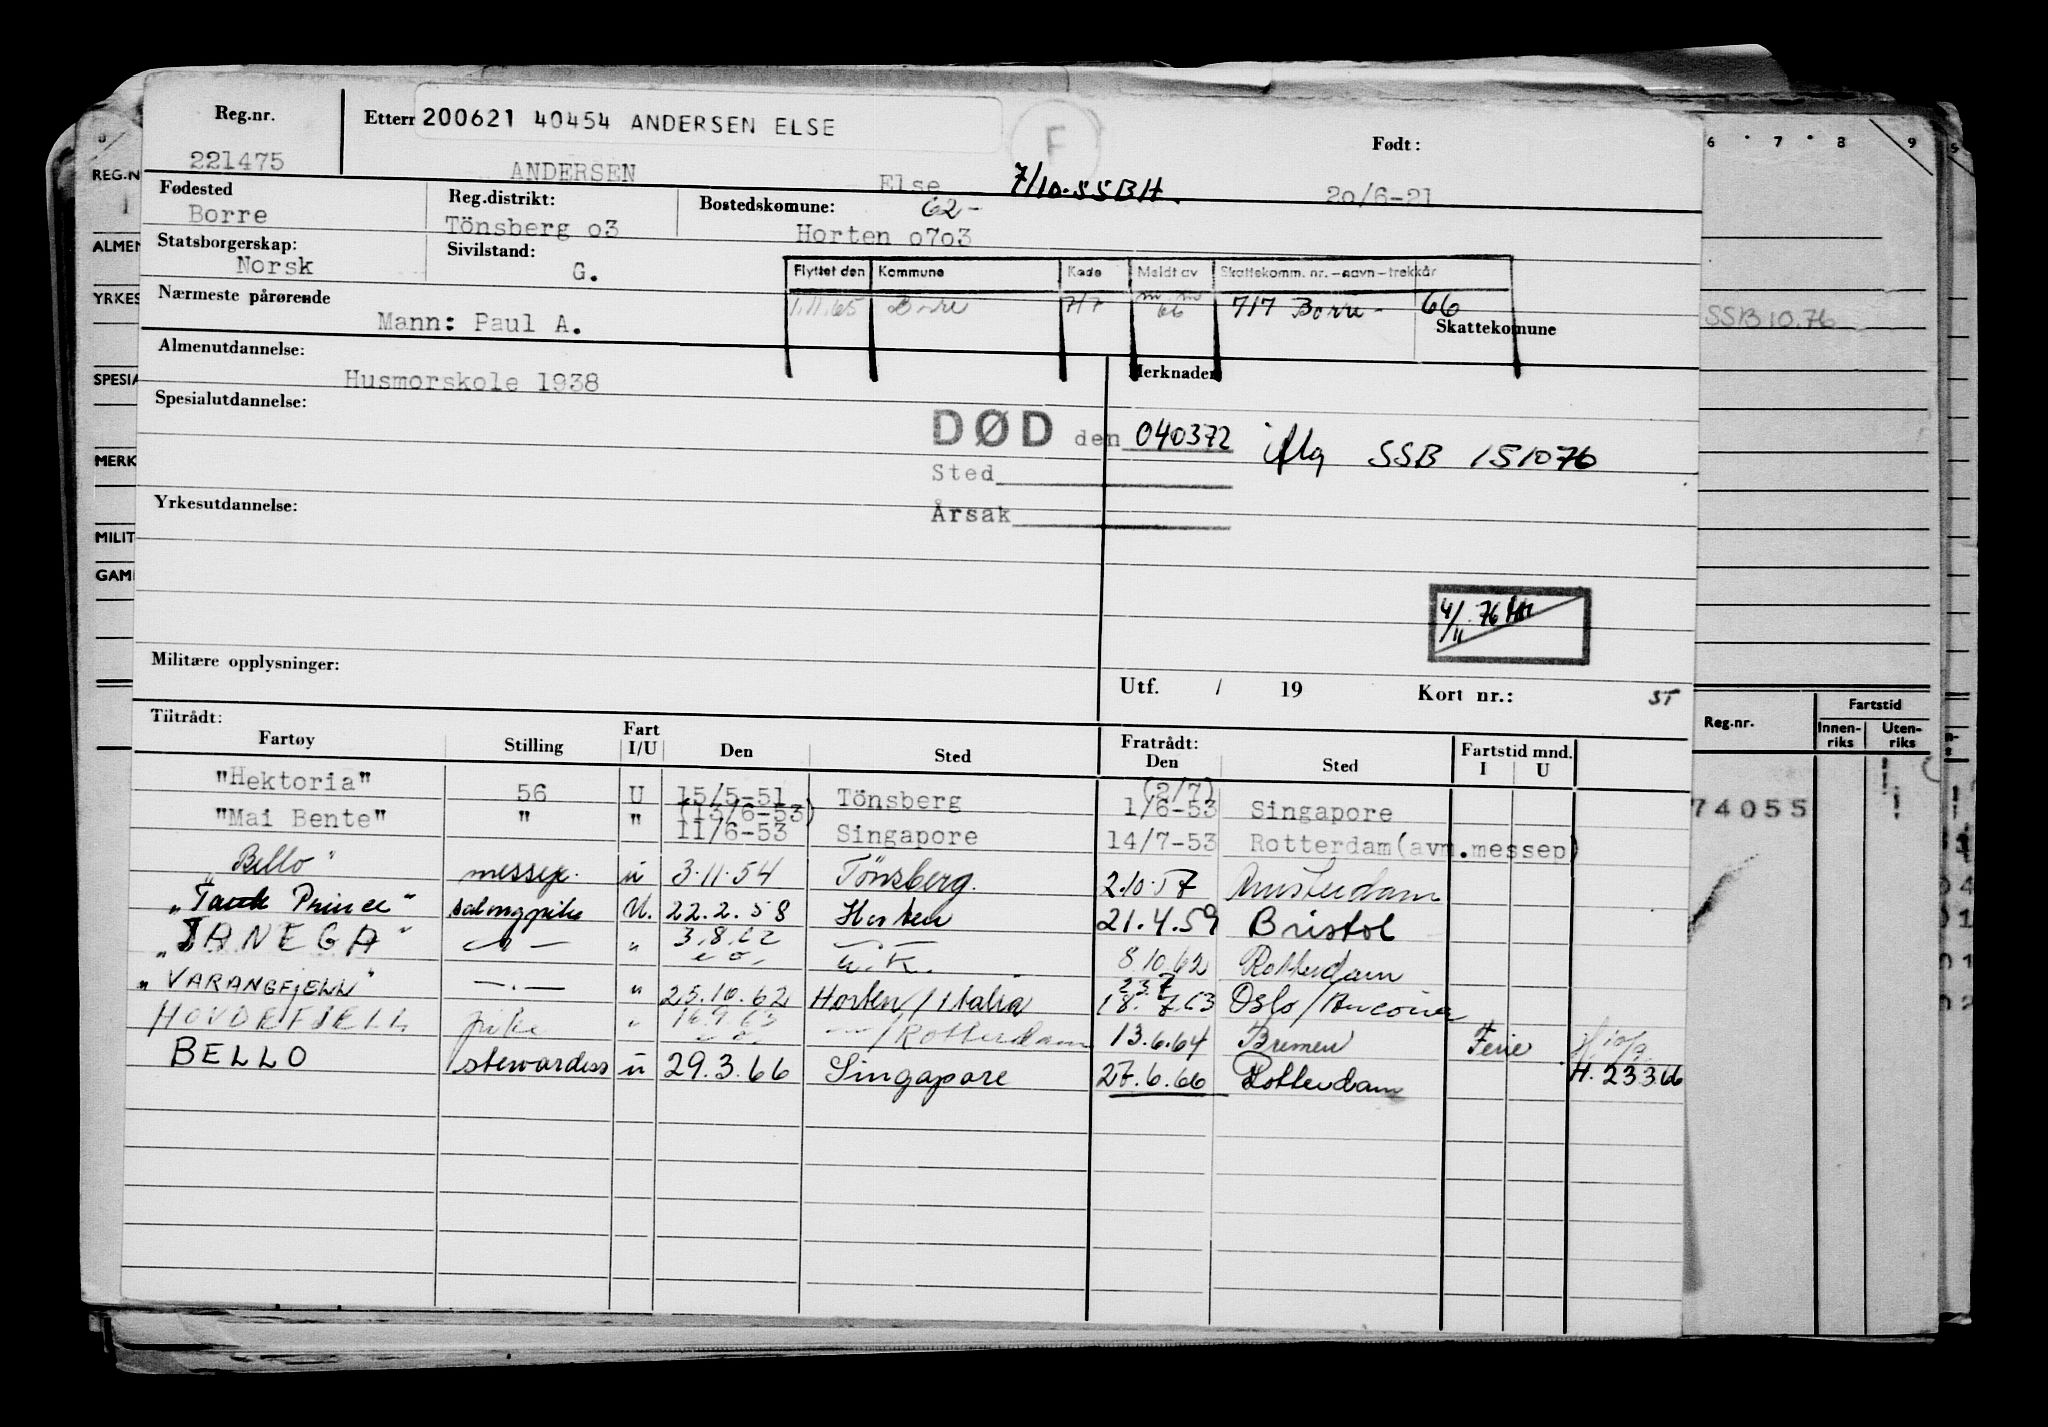 Reg.nr. Etterr 200621 40454 ANDERSEN ELSE F Født:
221475 ANDERSEN Else 7/10.55BH. 20/6-21
Fødested Reg.distrikt: Bostedskomune: 62-
Borre Tönsberg o3 Horten o7o3
Statsborgerskap: Sivilstand:
Norsk G.
Flyttet den Kommune Kode Meldt av Skattekomm. nr.-navn-trekkår
1.11.65 Borre 717 66 717 Borre - 66
Nærmeste pårørende
Mann: Paul A. Skattekomune
Almenutdannelse: Merknader
Husmorskole 1938
Spesialutdannelse:
DØD den 040372 iflg SSB 151076
Sted
Årsak
Yrkesutdannelse:
4/11 76
Militære opplysninger:
Utf. / 19 Kort nr.: ST
Tiltrådt: Fratrådt:
Fartøy Stilling Fart I/U Den Sted Den Sted Fartstid mnd. I U
"Hektoria" 56 U 15/5-51 Tönsberg (2/7) 1/6-53 Singapore
"Mai Bente" " " (13/6-53) 11/6-53 Singapore 14/7-53 Rotterdam (avm.messep)
"Bello" messep. u 3.11.54 Tönsberg. 2.10.57 Amsterdam
"Tank Prince" salongpike U. 22.2.58 Horten 21.4.59 Bristol
"JANEGA" — " — " 3.8.62 U.K. 8.10.62 Rotterdam
"VARANGFJELL" — " — " 25.10.62 Horten/Italia 23.7 18.7.63 Oslo/Ancona
HOVDEFJELL pike " 16.9.63 /Rotterdam 13.6.64 Bremen Ferie 10/9
BELLO stewardess u 29.3.66 Singapore 27.6.66 Rotterdam H. 23.3.66
REG.N
ALMEN
YRKES
SPESIA
MERK
MILIT
GAM
6 7 8 9
SSB 10.76
Reg.nr. Fartstid
Innen-riks Uten-riks
74055